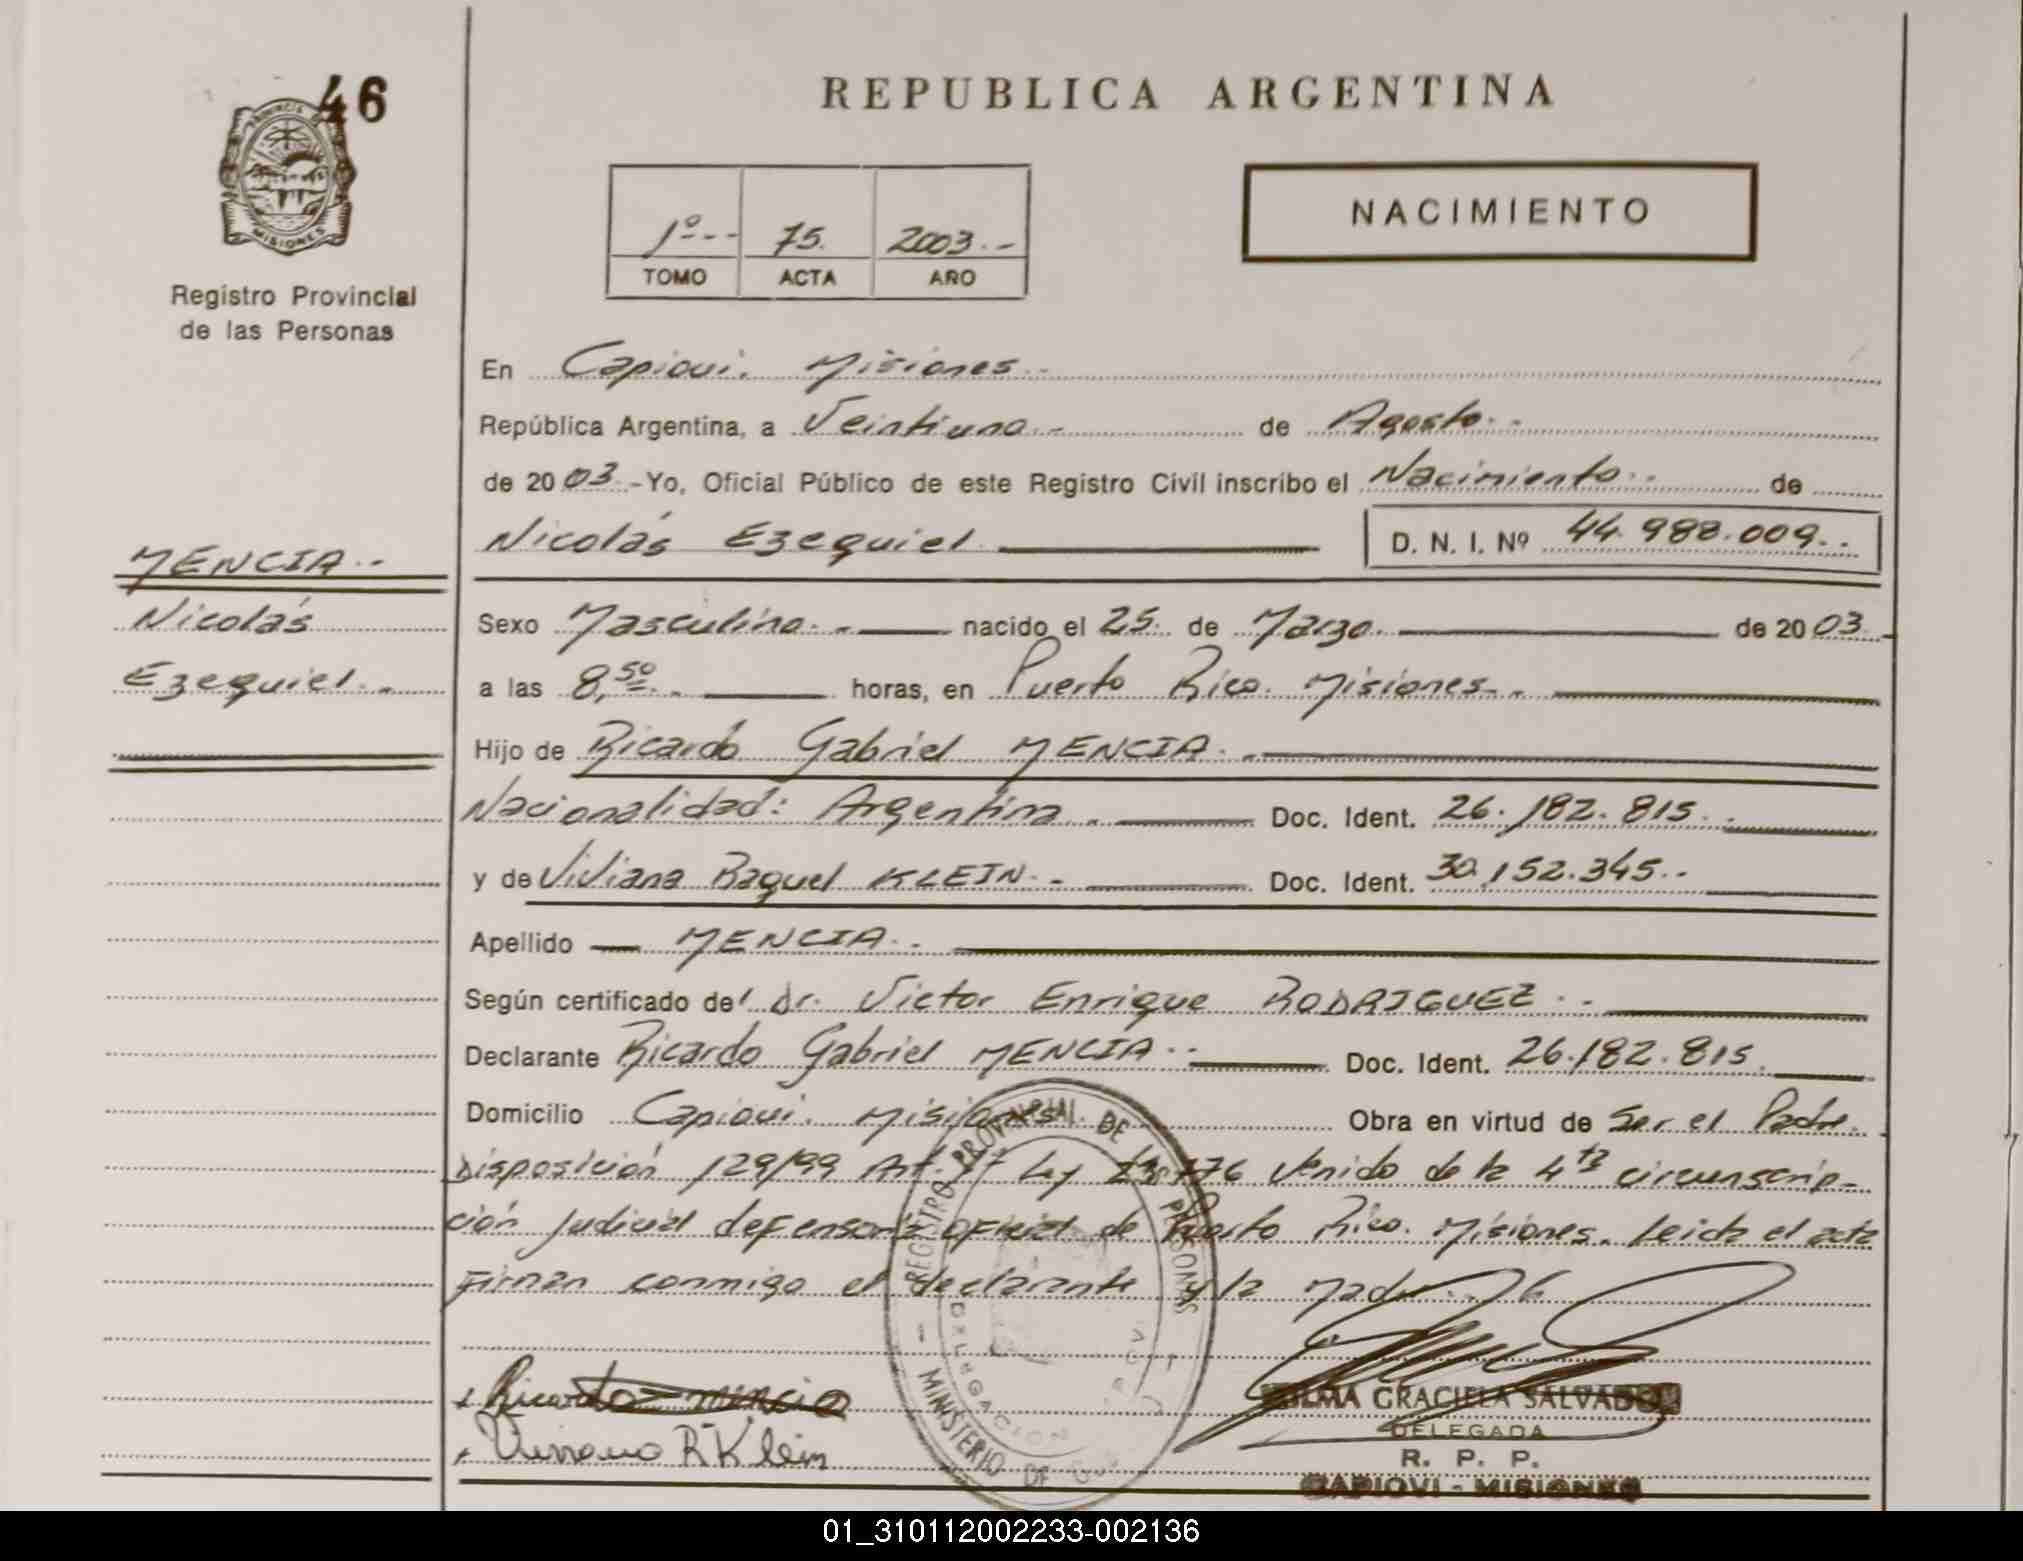 46
PROVINCIA
MISIONES
Registro Provincial
de las Personas
REPUBLICA ARGENTINA
1º-- 75. 2003.-
TOMO ACTA AÑO
NACIMIENTO
En Capiovi. Misiones.
República Argentina, a Veintiuno.- de Agosto.-
de 20 03.-Yo, Oficial Público de este Registro Civil inscribo el Nacimiento.. de
Nicolás Ezequiel D. N. I. Nº 44.988.009..
MENCIA..
Nicolás
Ezequiel..
Sexo Masculino.- nacido el 25. de Marzo. de 20 03.
a las 8,50.- horas, en Puerto Rico. Misiones..
Hijo de Ricardo Gabriel MENCIA..
Nacionalidad: Argentina.- Doc. Ident. 26.182.815..
y de Viviana Raquel KLEIN.- Doc. Ident. 30.152.345..
Apellido MENCIA..
Según certificado del Dr. Victor Enrique RODRIGUEZ..
Declarante Ricardo Gabriel MENCIA.. Doc. Ident. 26.182.815.
Domicilio Capiovi. Misiones Obra en virtud de Ser el Padre.
Disposición 129/99 Art. Ley 776 Venido de la 4ta circunscrip-
ción Judicial defensoria oficial de Puerto Rico. Misiones. Leida el acta
Firman conmigo el declarante y la Madre..
Ricardo Mencia
Viviana R Klein
REGISTRO PROVINCIAL DE LAS PERSONAS
MINISTERIO DE
DELEGACION
GRACIELA SALVADOR
DELEGADA
R. P. P.
CAPIOVI - MISIONES
01_310112002233-002136